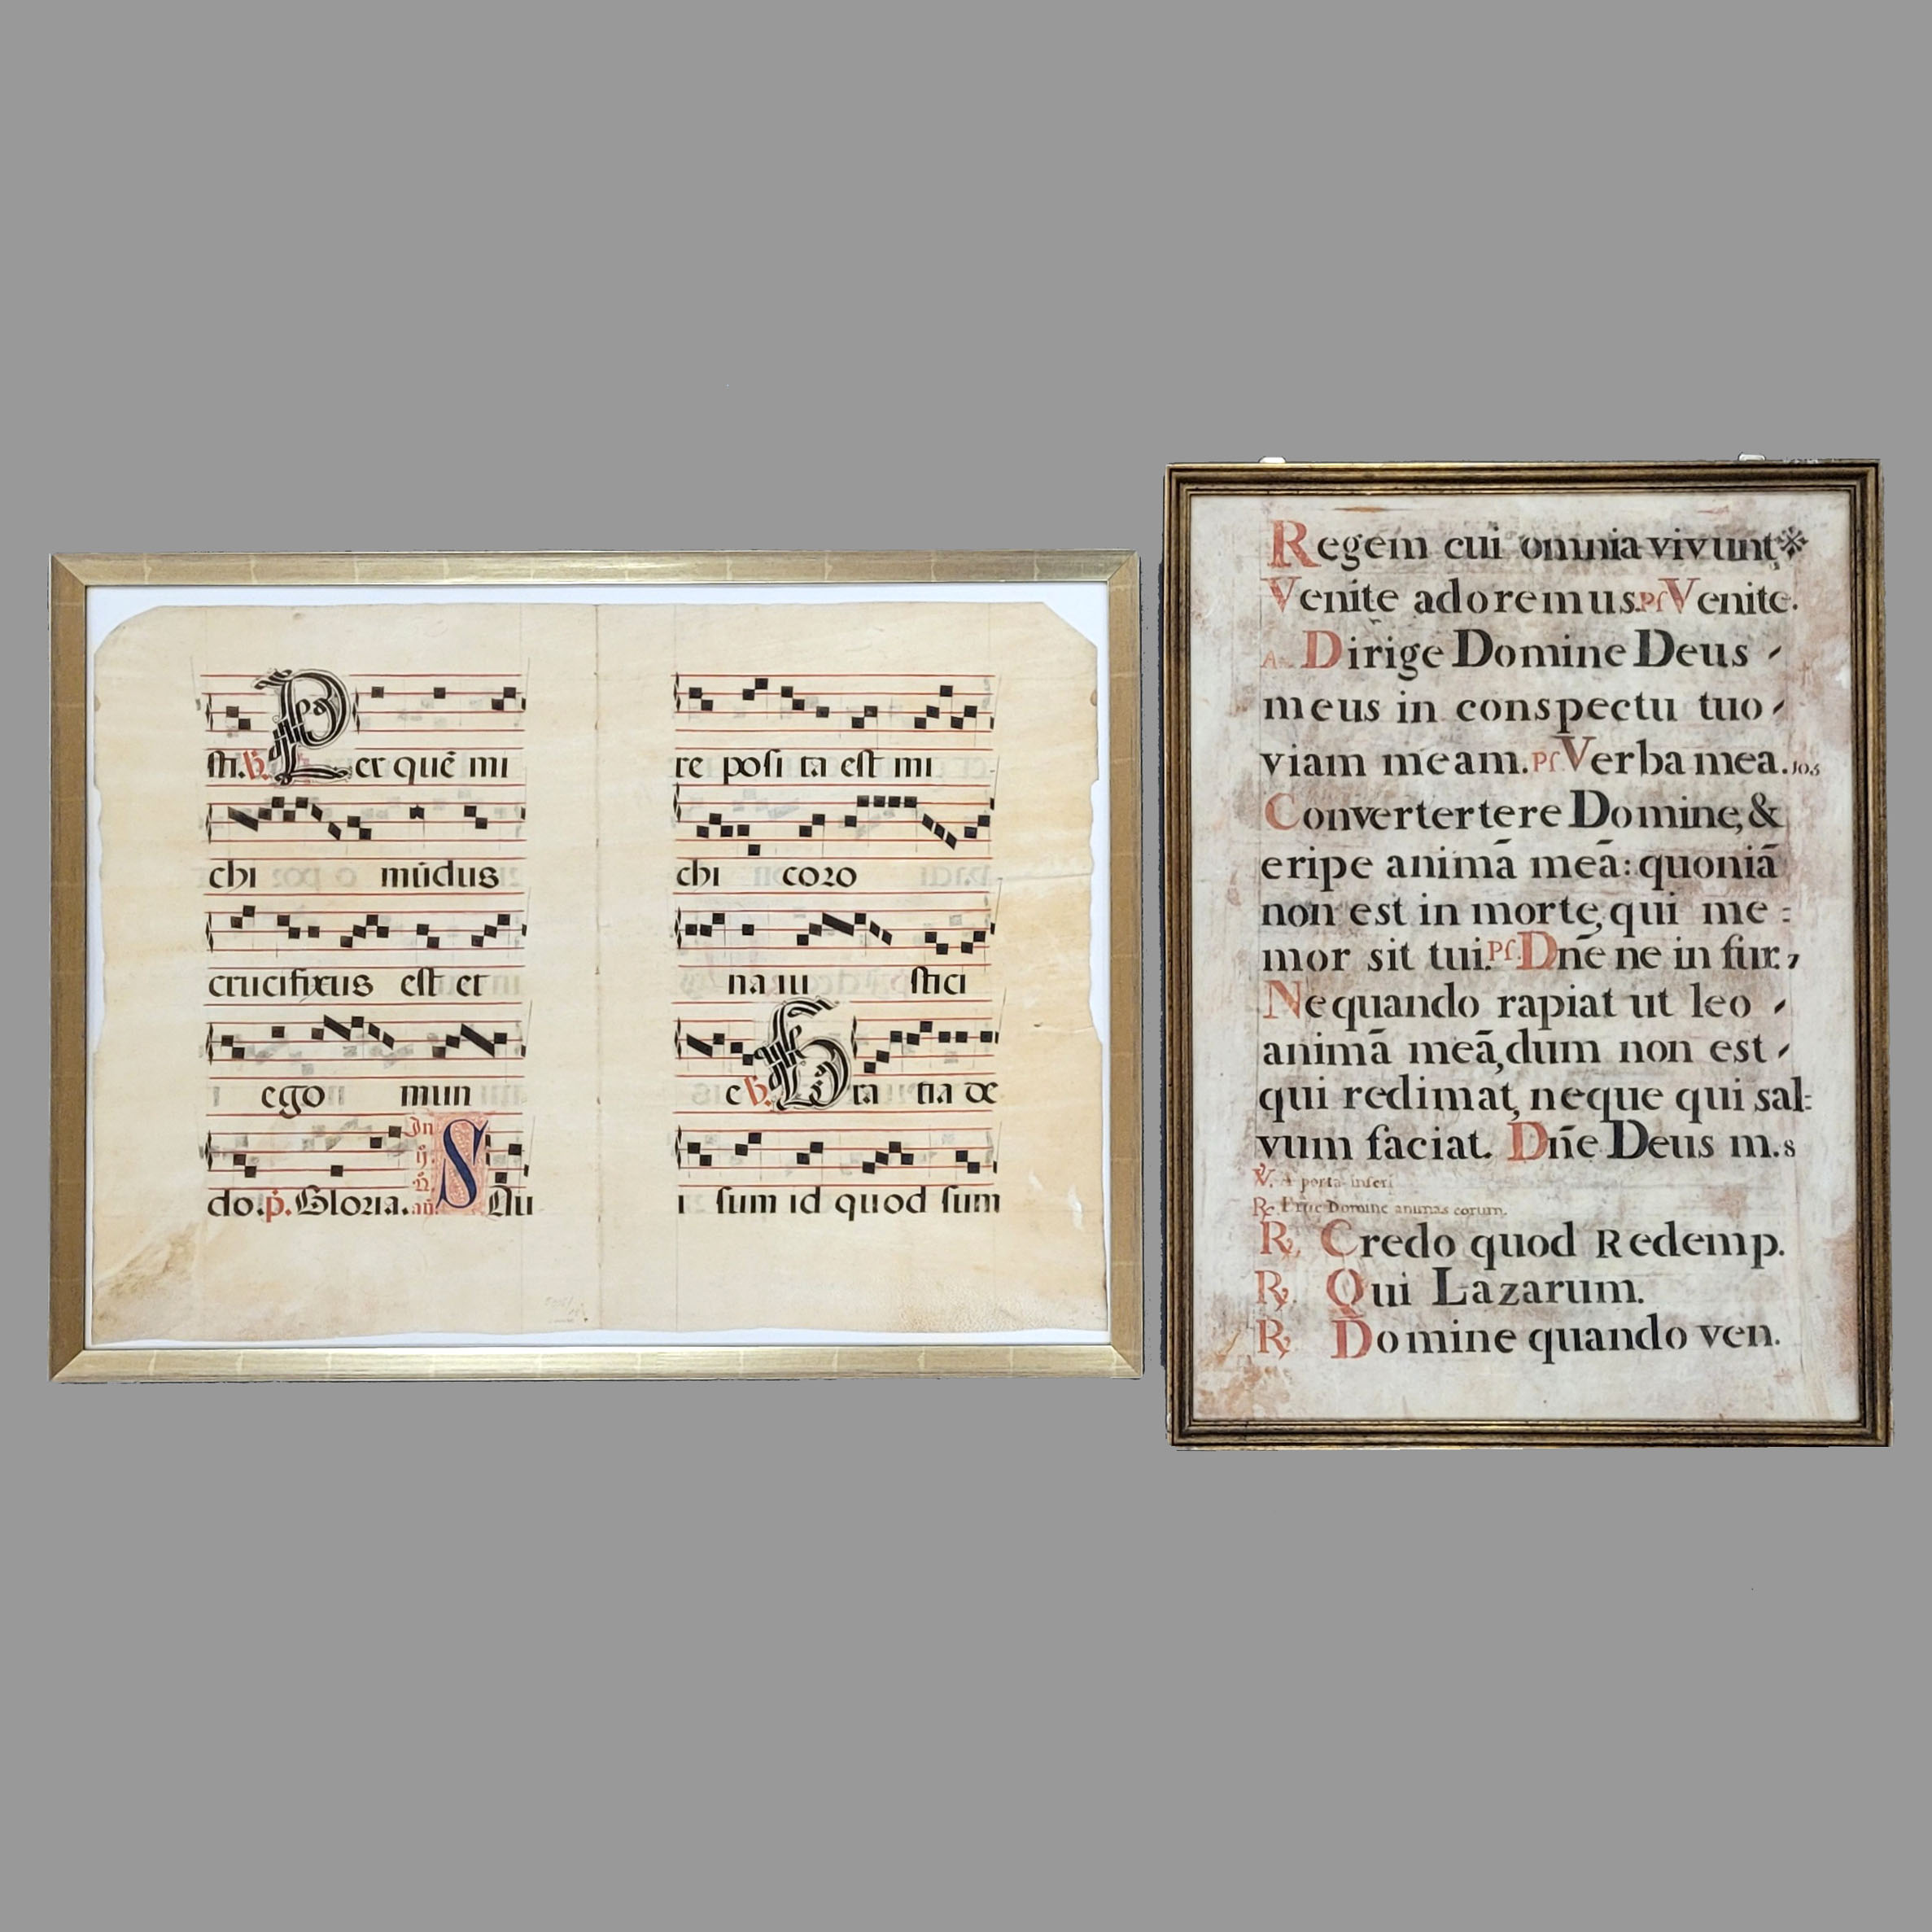 sti. ℟. Per quē mi
chi mūdus
crucifixus est et
ego mun
do. p̃. Gloria. In ij. ñ. añ. S Au
re posi ta est mi
chi coro
na iu stici
e ℟. Gra tia de
i sum id quod sum
Regem cui omnia vivunt※
Venite adoremus. Ps Venite.
A. Dirige Domine Deus
meus in conspectu tuo
viam meam. Ps Verba mea.
Convertertere Domine, &
eripe animā meā: quoniā
non est in morte, qui me=
mor sit tui. Ps. Dn̄e ne in fur.
Nequando rapiat ut leo
animā meā, dum non est
qui redimat, neque qui sal=
vum faciat. Dn̄e Deus m. 8
℣. A porta inferi
℟. Erue Domine animas eorum.
℟. Credo quod Redemp.
℟. Qui Lazarum.
℟. Domine quando ven.